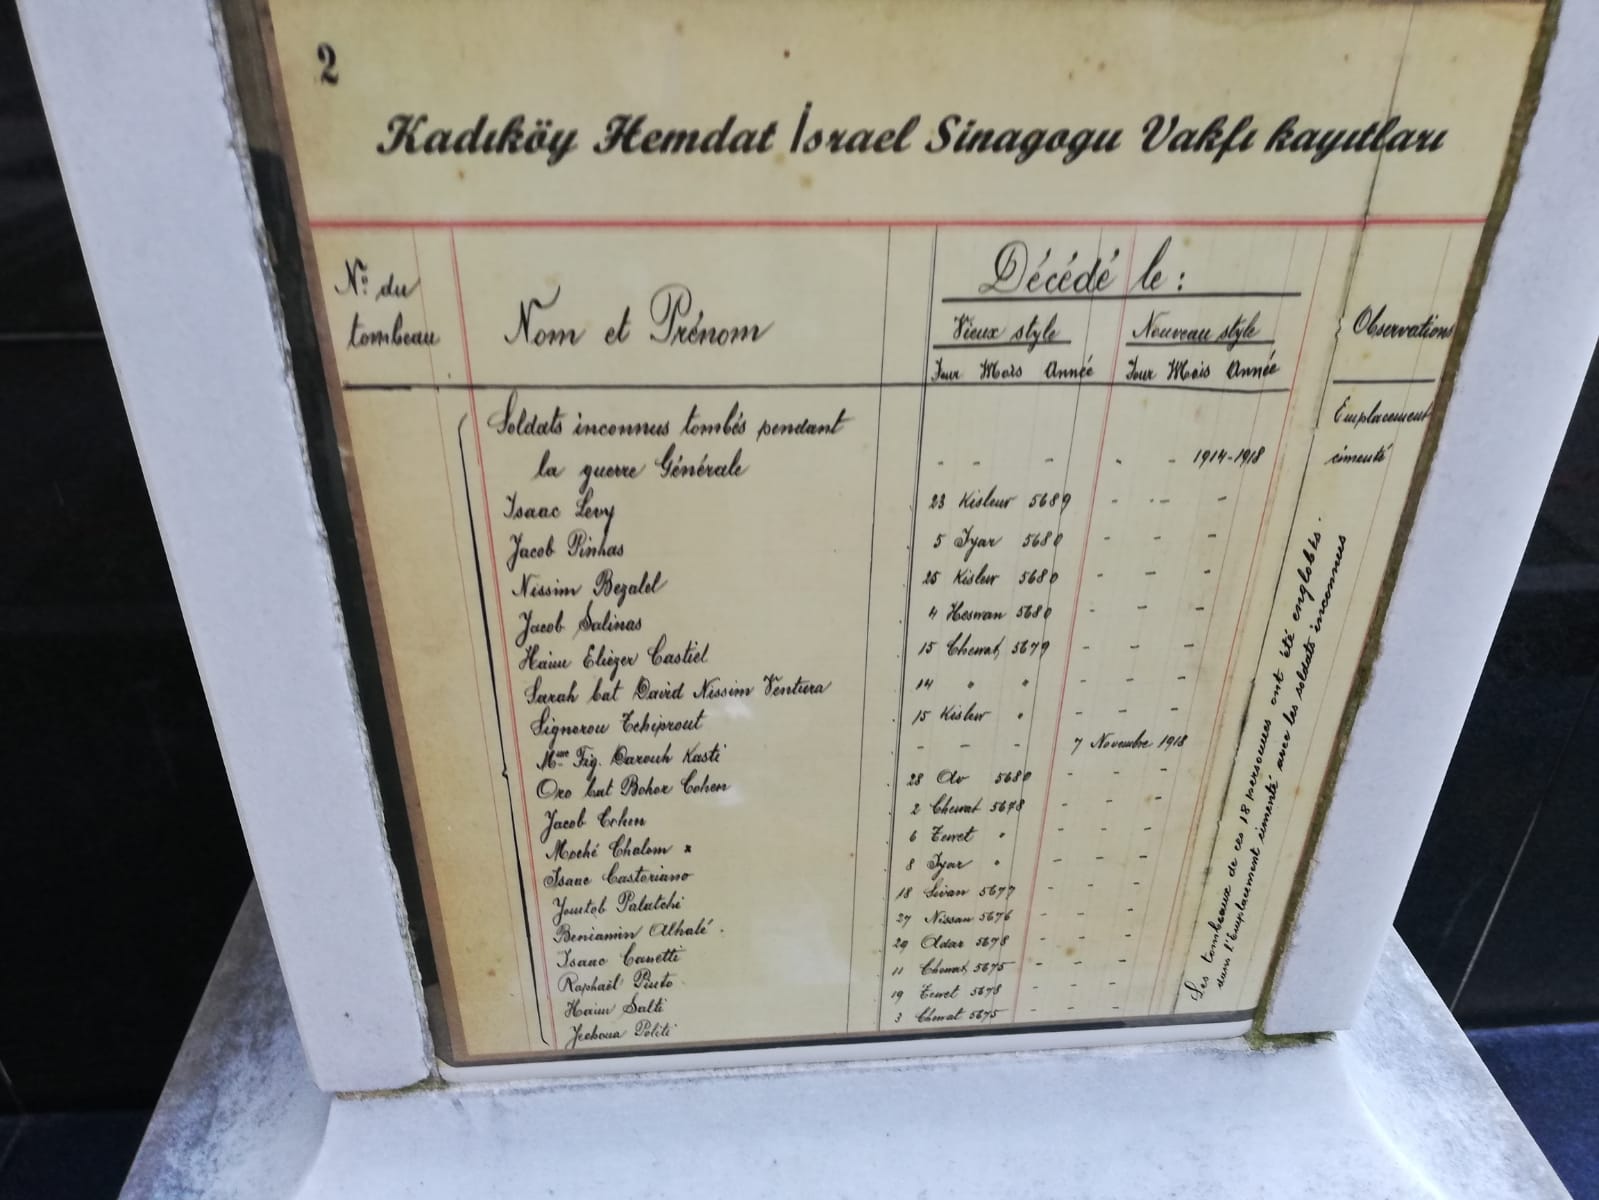 2
Kadıköy Hemdat İsrael Sinagogu Vakfı kayıtları
Nº du tombeau
Nom et Prénom
Décédé le :
Vieux style
Nouveau style
Jour Mois Année
Jour Mois Année
Observations
Soldats inconnus tombés pendant
la guerre Générale - - - - - 1914-1918
Emplacement
cimenté
Isaac Levy 23 Kisleur 5689 - - -
Jacob Pinhas 5 Iyar 5680 - - -
Nissim Bezalel 25 Kislew 5680 - - -
Jacob Salinas 4 Heswan 5680 - - -
Haim Eliezer Castiel 15 Chewat 5679 - - -
Sarah bat David Nissim Ventura 14 " " - - -
Signorou Tchiprout 15 Kislew " - - -
Mme Fig. Darouh Kasti - - - 7 Novembre 1918
Oro bat Bohor Cohen 28 Av 5680 - - -
Jacob Cohen 2 Chewat 5678 - - -
Moché Chalom x 6 Tewet " - - -
Isaac Castoriano 8 Iyar " - - -
Yomtob Palatchi 18 Sivan 5677 - - -
Beniamin Alhalé . 27 Nissan 5676 - - -
Isaac Canetti 29 Adar 5678 - - -
Raphaël Pinto 11 Chewat 5675 - - -
Haim Salti 19 Tewet 5678 - - -
Jechoua Politi 3 Chewat 5675 - - -
Les tombeaux de ces 18 personnes ont été englobés
dans l'Emplacement cimenté avec les soldats inconnus